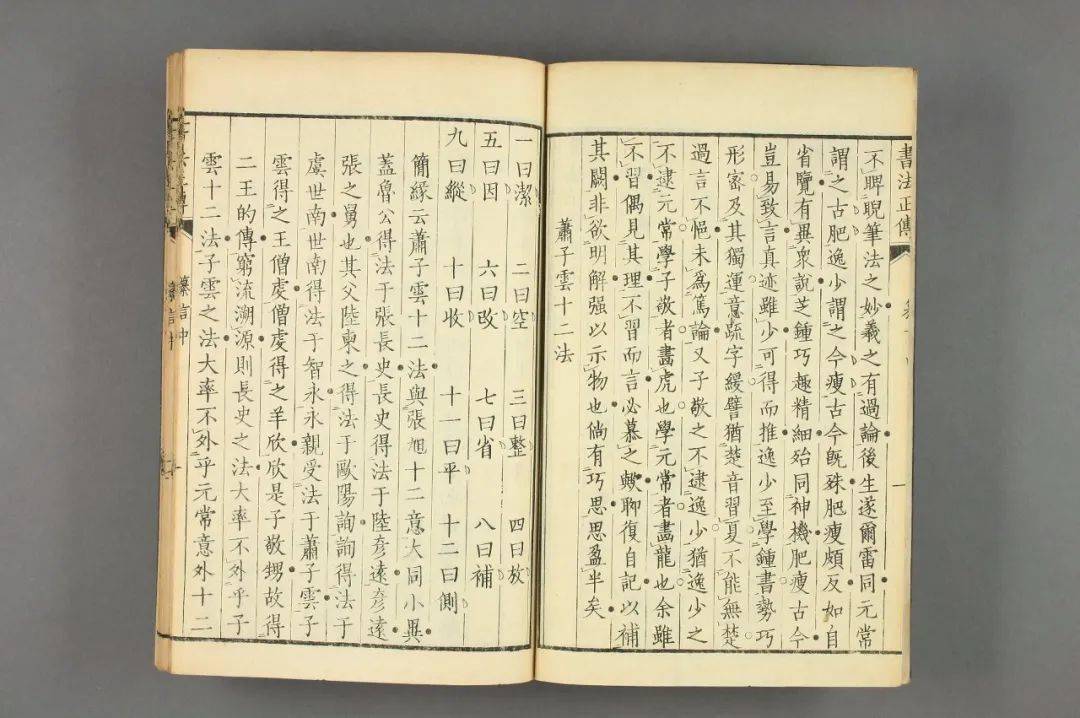 書法正傳
不睥睨筆法之妙羲之有過論後生遂爾雷同元常
謂之古肥逸少謂之今瘦古今旣殊肥瘦頗反如自
省覽有異衆說芝鍾巧趣精細殆同神機肥瘦古今
豈易致言真迹雖少可得而推逸少至學鍾書勢巧
形密及其獨運意疏字緩譬猶楚音習夏不能無楚
過言不悒未爲篤論又子敬之不逮逸少猶逸少之
不逮元常學子敬者畫虎也學元常者畫龍也余雖
不習偶見其理不習而言必慕之歟聊復自記以補
其闕非欲明解强以示物也倘有巧思思盈半矣
蕭子雲十二法
一曰潔 二曰空 三曰整 四曰放
五曰因 六曰改 七曰省 八曰補
九曰縱 十曰收 十一曰平 十二曰側
簡緣云蕭子雲十二法與張旭十二意大同小異
蓋魯公得法于張長史長史得法于陸彥遠彥遠
張之舅也其父陸柬之得法于歐陽詢詢得法于
虞世南世南得法于智永永親受法于蕭子雲子
雲得之王僧虔僧虔得之羊欣欣是子敬甥故得
二王的傳窮流溯源則長史之法大率不外乎子
雲十二法子雲之法大率不外乎元常意外十二
纂言中